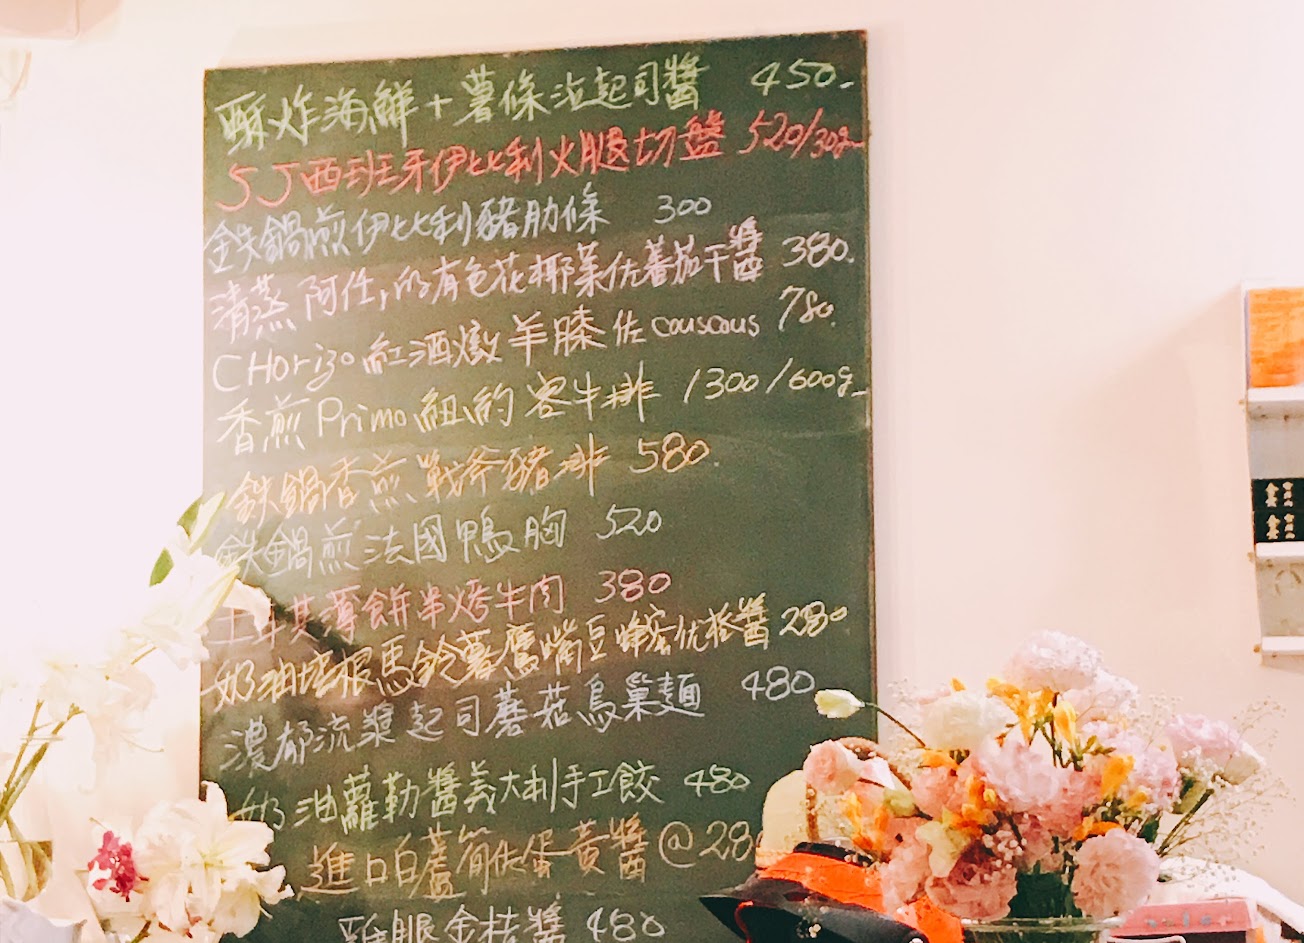 酥炸海鮮+薯條沾起司醬 450-
5J西班牙伊比利火腿切盤 520/30g-
鉄鍋煎伊比利豬肋條 300
清蒸阿任的有色花椰菜佐蕃茄干醬 380.
CHorizo 紅酒燉羊膝佐couscous 780.
香煎Primo紐約客牛排 1300/600g-
鉄鍋香煎戰斧豬排 580.
鉄鍋煎法國鴨胸 520
土耳其薄餅串烤牛肉 380
奶油培根馬鈴薯鷹嘴豆蜂蜜优格醬 280
濃郁流漿起司蘑菇鳥巢麵 480
奶油蘿勒醬義大利手工餃 480
進口白蘆筍佐蛋黃醬@280
鴨腿金桔醬 480